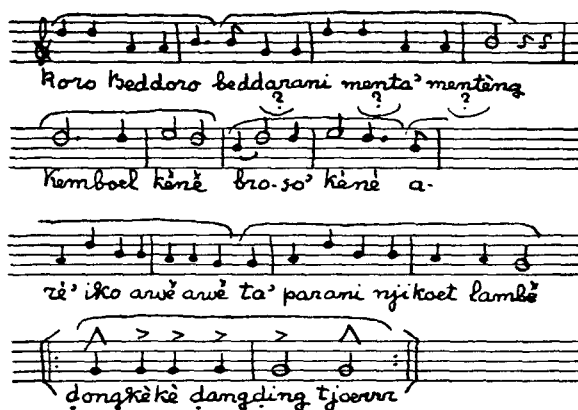 Koro Keddoro beddarani menta' mentèng
? ? ?
Kemboel kènè̆ bro-so' kènè a-
rè' iko awĕ̀ awĕ̀ ta' parani njikoet lambĕ̀
ḍongkèkè ḍangḍing tjoerrr